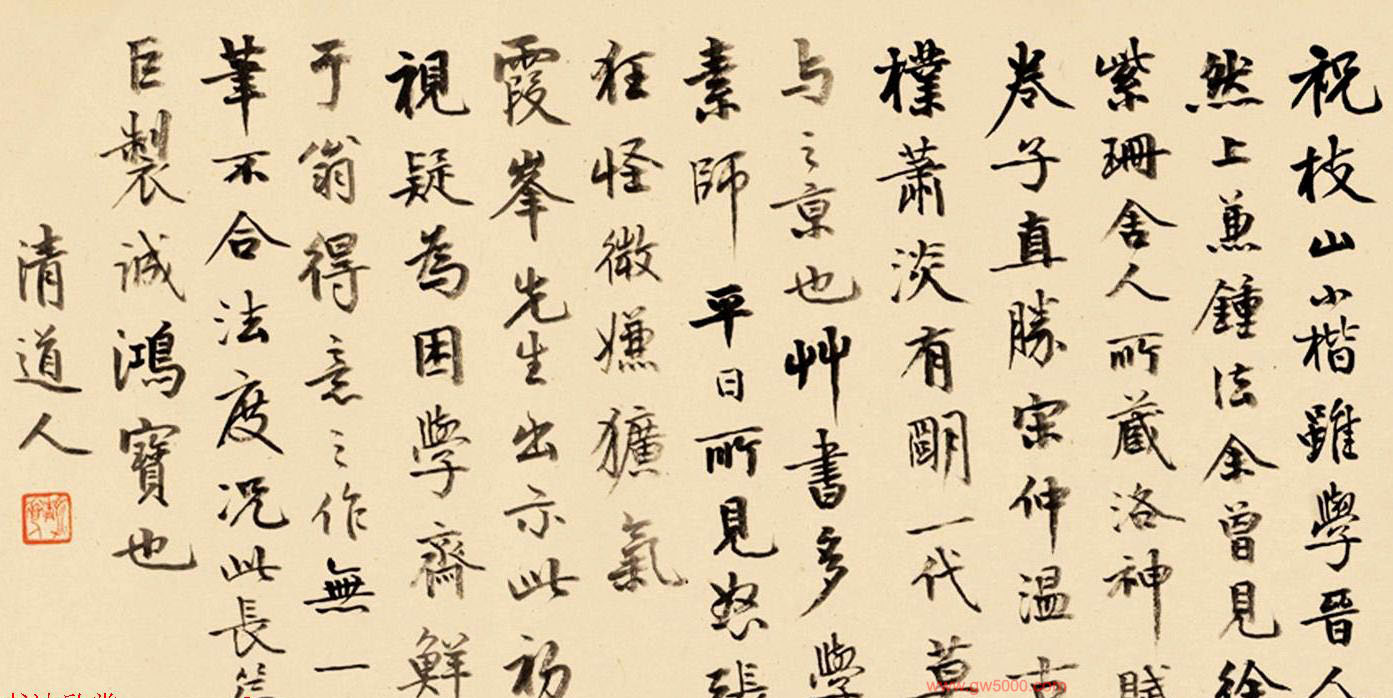 祝枝山小楷雖學晉人
然上兼鍾法余曾見徐
紫珊舍人所藏洛神賦
卷子直勝宋仲溫古
樸蕭淡有明一代莫
与之京也艸書多學
素師平日所見怒張
狂怪微嫌獷氣
霞峯先生出示此初
視疑為困學齋鮮
于翁得意之作無一
筆不合法度況此長
巨製誠鴻寶也
清道人
www.gw5000.com